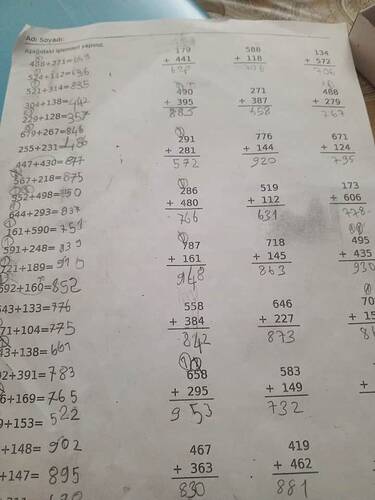 Adı Soyadı:
Aşağıdaki işlemleri yapınız.
179 588 134
488+271= + 441 + 118 + 572
524+112=636 706 706
521+314=835 490 271 488
304+138=442 + 395 + 387 + 279
229+128=357 885 658 767
679+267=846 291 776 671
255+231=486 + 281 + 144 + 124
447+430=877 572 920 795
567+218=875 286 519 173
952+498= + 480 + 112 + 606
644+293=837 766 631 778
161+590=751
591+248=839 787 718 495
721+189=910 + 161 + 145 + 435
692+160=852 948 863 930
643+133=776 558 646 70
671+104=775 + 384 + 227 + 15
43+138=661 842 873
92+391=783 658 583
6+169=765 + 295 + 149 +
9+153=522 953 732
+148=902 467 419
+147=895 + 363 + 462
830 881